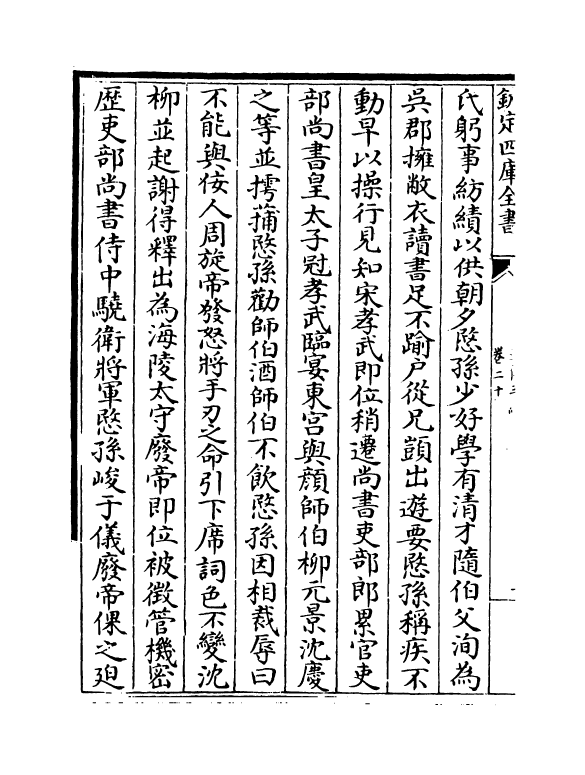 欽定四庫全書
卷二十
氏躬事紡績以供朝夕愍孫少好學有清才隨伯父洵為
吳郡擁敝衣讀書足不踰戶從兄顗出遊要愍孫稱疾不
動早以操行見知宋孝武即位稍遷尚書吏部郎累官吏
部尚書皇太子冠孝武臨宴東宮與顔師伯柳元景沈慶
之等並摴蒱愍孫勸師伯酒師伯不飲愍孫因相裁辱曰
不能與佞人周旋帝發怒將手刃之命引下席詞色不變沈
柳並起謝得釋出為海陵太守廢帝即位被徵管機密
歴吏部尚書侍中驍衛將軍愍孫峻于儀廢帝倮之迫